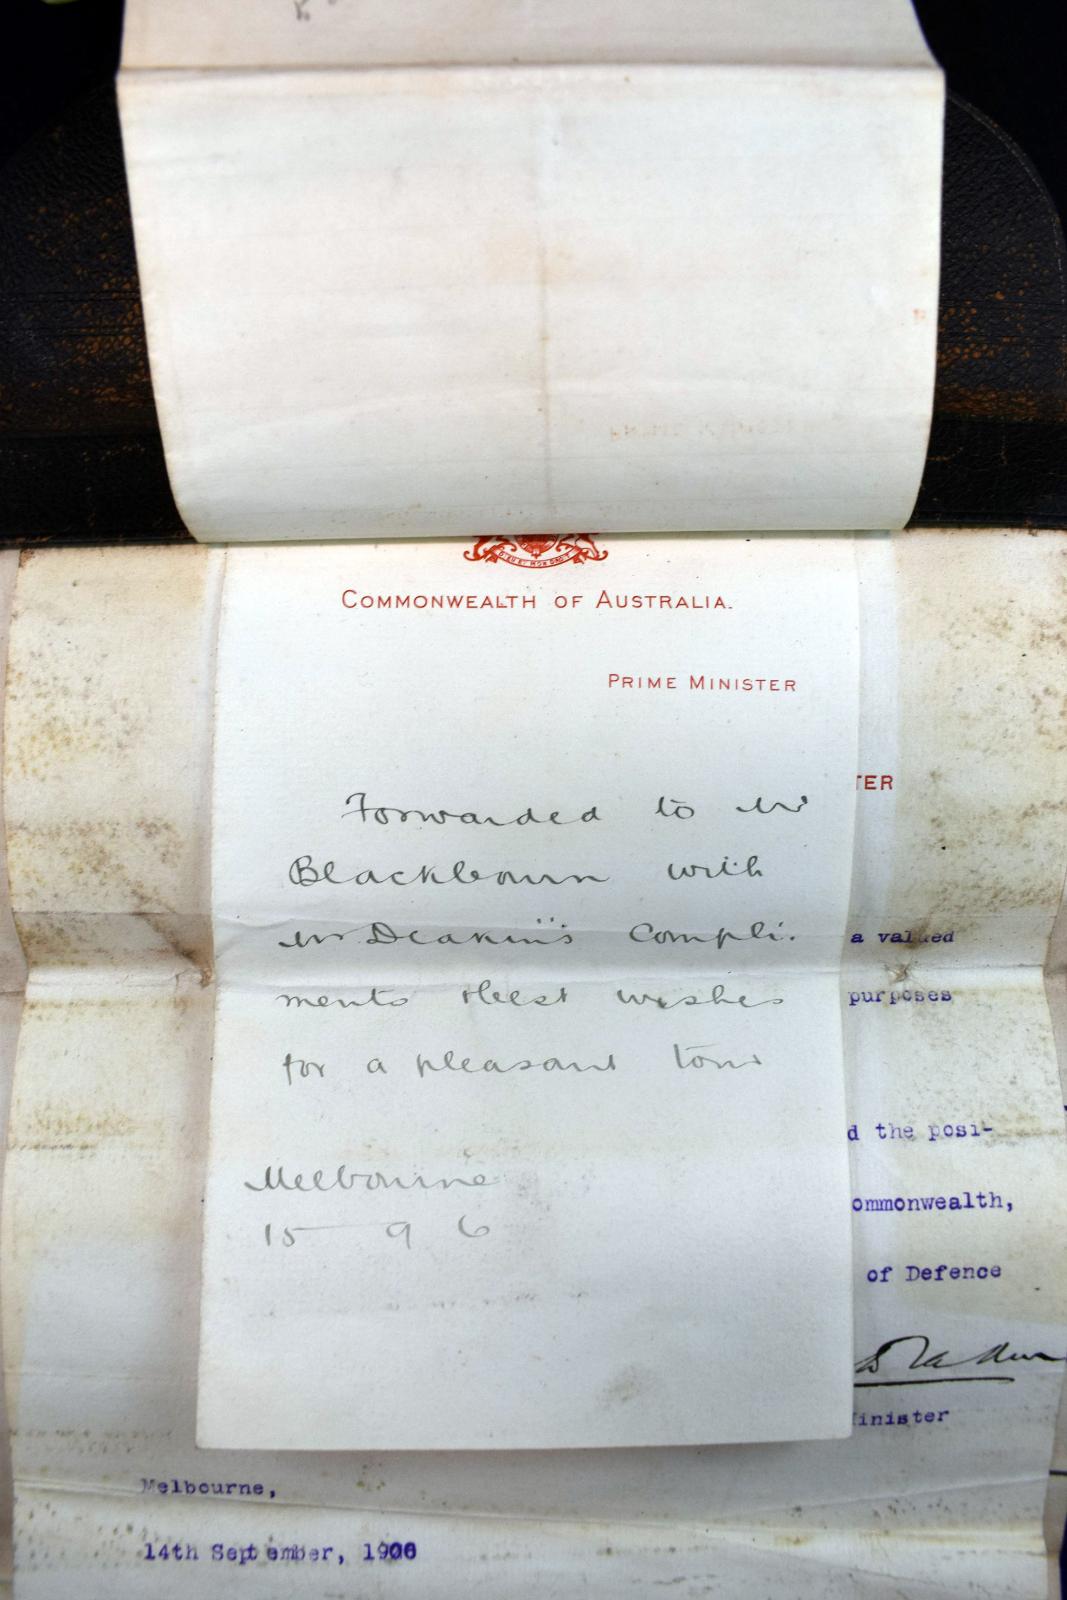 COMMONWEALTH OF AUSTRALIA.
PRIME MINISTER
Forwarded to Mr
Blackbourn with
Mr Deakin's Compli-
ments & best wishes
for a pleasant tour
Melbourne
15 9 6
TER
a valued
purposes
d the posi-
ommonwealth,
of Defence
inister
Melbourne,
14th September, 1906